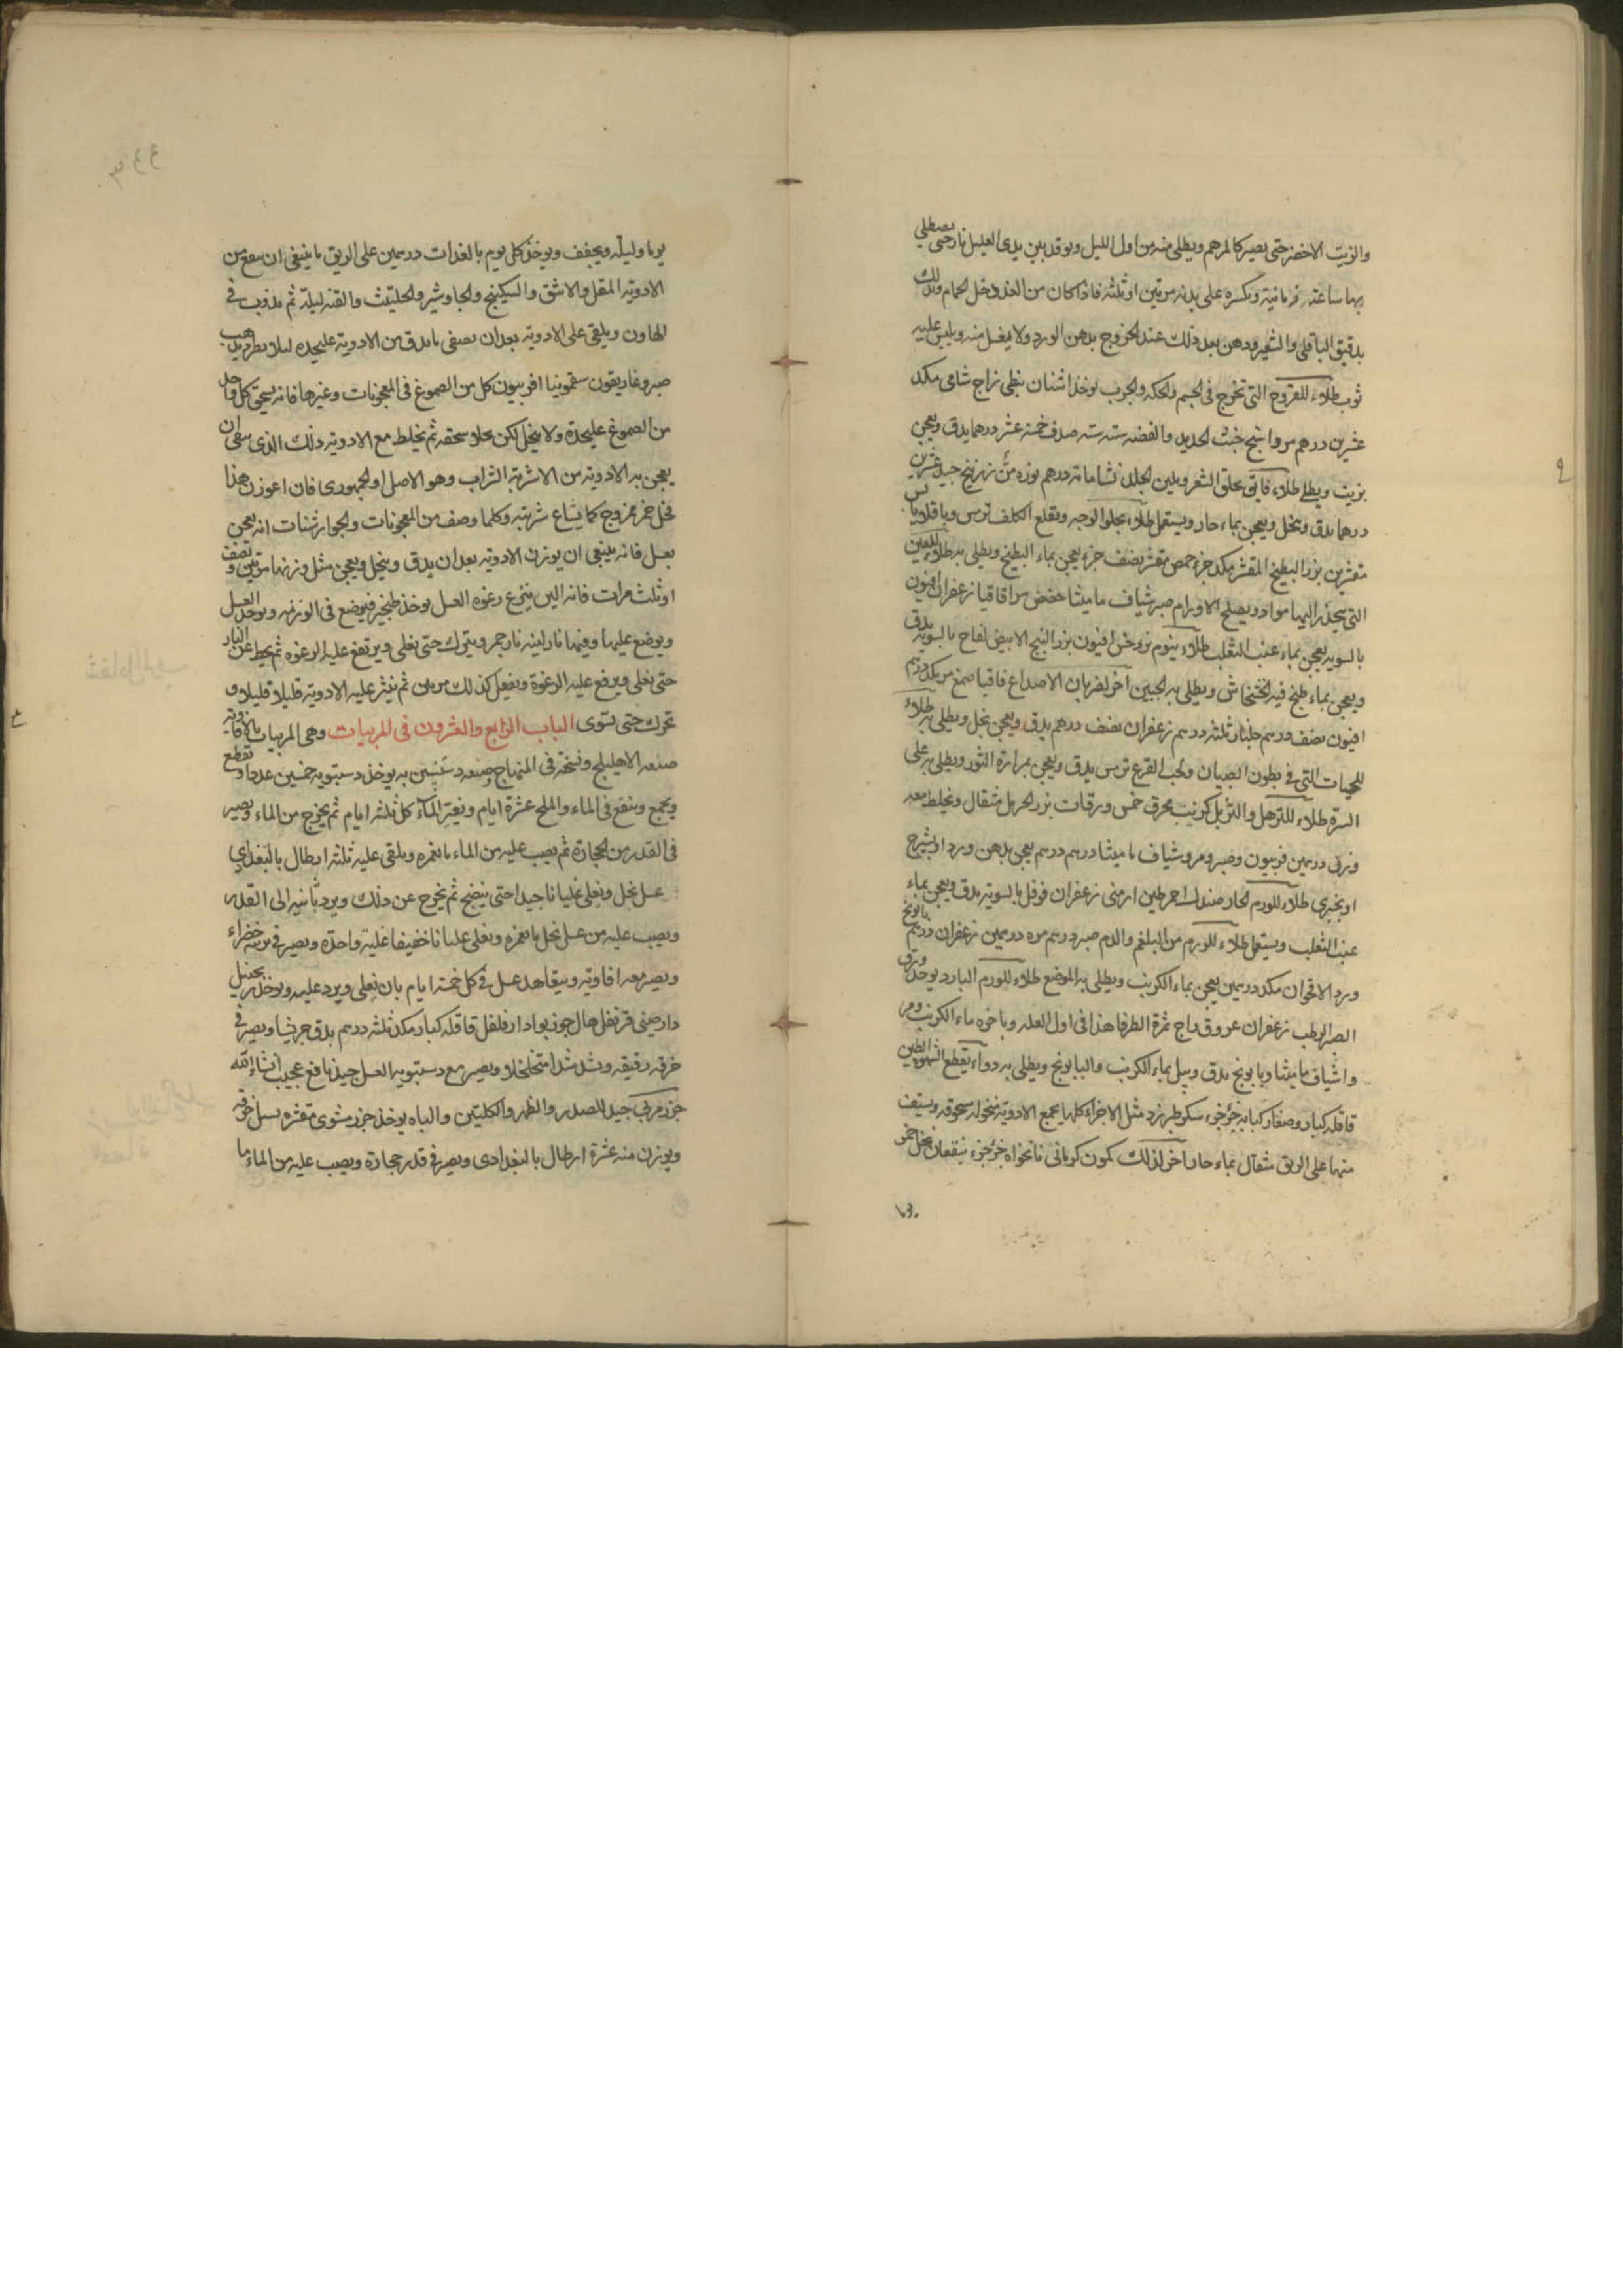 والزيت الاخضر حتى يصير كالمرهم ويطلى منه من اول الليل ويوقد بين يدى العليل نار حتى يصطلى
بها ساعته زمانية وتكسره على بدنه مرتين او ثلثه فاذا كان من الغد دخل الحمام وتدلك
بدقيق الباقلى والشعير ودهن بعد ذلك عند الخروج بدهن الورد ولا يغسل منه ويلبس عليه
ثوب طلاء للقروح التى تخرج فى الجسم والحكه والجرب يوخذ اشنان نبطى زاج شامى مكد
عشرين درهم مرداسنج خبث الحديد والفضه سته سته صدف خمسة عشر درهما يدق ويعجن
بزيت ويطلى طلاء فايق يحلق الشعر ويلين الجلد نشا مائة درهم نوره من زرنيخ جيد عشرين
درهما يدق وينخل ويعجن بماء حار ويستعمل طلاء يجلوا الوجه ويقلع الكلف ترمس وباقلا يابس
مقشرين بزر البطيخ المقشر مكد جزء حمص مقشر نصف جزء يعجن بماء البطيخ ويطلى به طلاء للعين
التى ينجذر اليها مواد ويصلح الاورام صبر شياف ماميثا حضض مر اقاقيا زعفران افيون
بالسويه يعجن بماء عنب الثعلب طلاء ينوم بزر خس افيون بزر البنج الابيض لفاح بالسويه يدق
ويعجن بماء طبخ فيه الخشخاش ويطلى به الجبين آخر لضربان الاصداع فاقيا صمغ مر مكد درهم
افيون نصف درهم جلنار ثلثه درهم زعفران نصف درهم يدق ويعجن بخل ويطلى به طلاء
للحيات التى فى بطون الصبيان ولحب القرع ترمس يدق ويعجن بمرارة الثور ويطلى به على
السرة طلاء للترهل والتربل كرنب محرق خمس ورقات بزر الحرمل مثقال ويخلط معه
درهمين فربيون وصبر ومر وشياف ماميثا درهم درهم يعجن بدهن ورد او بشيرج
او بخيرى طلاء للورم الحار صندل احمر طين ارمنى زعفران فوفل بالسويه يدق ويعجن بماء
عنب الثعلب ويستعمل طلاء للورم من البلغم والدم صبر درهم مره درهمين زعفران درهم بابونج
ورد الاقحوان مكد درهمين يعجن بماء الكرنب ويطلى به الموضع طلاء للورم البارد يوخذ ورق
الصبر الرطب زعفران عروق زاج ثمرة الطرفا هذا فى اول العله وباخره ماء الكرنب ومر
واشياف ماميثا وبابونج يدق ويبل بماء الكرنب والبابونج ويطلى به دواء يقطع الشهوه الطين
قاقله كبار وصغار كبابه جزء جزء سكر طبرزد مثل الاجزاء كلها يجمع الادويه منخوله مسحوقه ويستف
منها على الريق مثقال بماء حار اخر لذلك كمون كرمانى نانخواه جزء جزء ينقعان بخل خمر
يوما وليله ويجفف ويوخذ كل يوم بالغدات درهمين على الريق ما ينبغى ان ينقع من
الادويه المقل والاشق والسكبينج والجاوشير والحلتيث والقنه ليلة ثم يذوب فى
الهاون ويلقى على الادويه بعد ان يصفى ما يدق من الادويه عليحده ليلا يطر ويذهب
صبر وغاريقون سقمونيا افربيون كل من الصموغ فى المعجونات وغيرها فانه يسحق كل واحد
من الصموغ عليحدة ولا ينخل لكن يجلا سحقه ثم يخلط مع الادويه ذلك الذى ينبغى ان
يعجن به الادويه من الاشربة الشراب وهو الاصل او الجمهورى فان اعوزك هذا
فخل خمر ممزوج كما يشاع شربته وكلما وصف من المعجونات والجوارشنات انه يعجن
بعسل فانه ينبغى ان يوزن الادويه بعد ان يدق وينخل ويعجن مثل وزنها مرتين ونصف
او ثلث مرات فانه الين ينزع رغوه العسل يوخذ طنجير فيوضع فى الوزنه ويوخذ العسل
ويوضع عليها وفيها نار لينه نار جمر ويترك حتى يغلى ويرتفع عليه الرغوه ثم يحط عن النار
حتى يغلى ويرفع عليه الرغوة ويفعل كذلك مرتين ثم ينثر عليه الادويه قليلا قليلا و
تحرك حتى تستوى الباب الرابع والعشرون فى المربيات وهى المربيات بالافاويه
صنعه الاهليلج ونسخته فى المنهاج وصنعه دستبنين به يوخذ دستبويه خمسين عددا وتقطع
ويجمع وينقع فى الماء والملح عشرة ايام ويغير الماء كل ثلثه ايام ثم يخرج من الماء ويصير
فى القدر من الحجارة ثم يصب عليه من الماء ما يغمره ويلقى عليه ثلثه ارطال بالبغدادى
عسل نحل ويغلى غليانا جيدا حتى ينضج ثم يخرج عن ذلك ويرد ثانيه الى القدر
ويصب عليه من عسل نحل ما يغمره ويغلى غليانا خفيفا غلية واحده ويصير فى برنيه خضراء
ويصير معه افاويه ويتعاهد عسل فى كل خمسة ايام بان يغلى ويرد عليه ويوخذ زنجبيل
دارصينى قرنفل هال جوزبوا دارفلفل قاقله كبار مكد ثلثه درهم يدق جريشا ويصير فى
خرقه رقيقه وتشد شدا متخلخلا ويصير مع دستبويه العسل جيد نافع عجيب انشاء الله
جزر مربى جيد للصدر والظهر والكليتين والباه يوخذ جزر مشوى مقشره بسل خرقه
ويوزن منه عشرة ارطال بالبغدادى ويصير فى قدر حجارة ويصب عليه من الماء ما